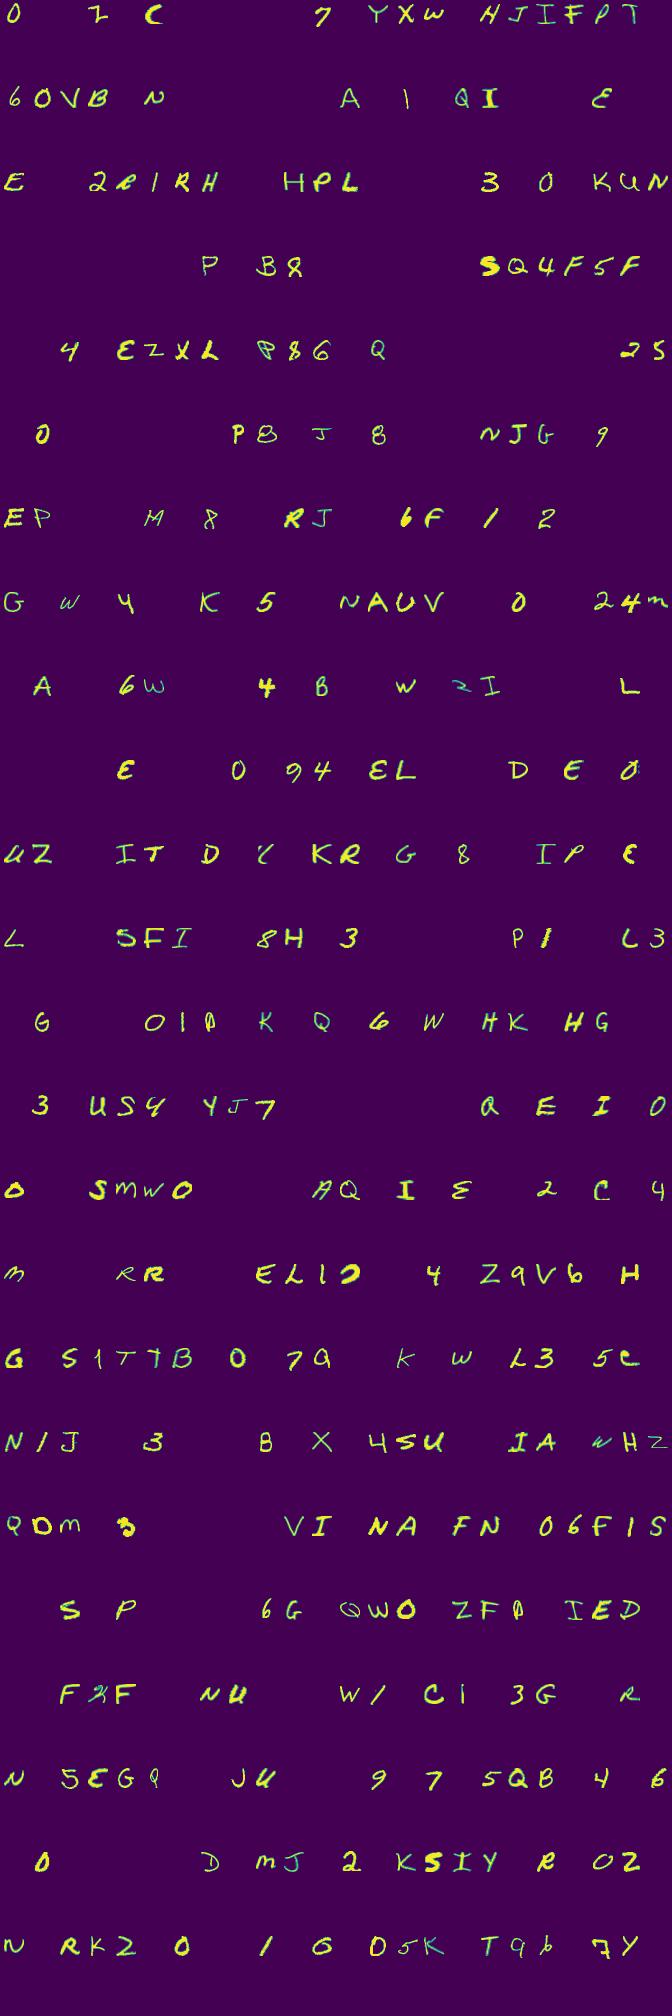 0 Z C 7 Y X W H J I F P T
6 0 V B N A 1 Q I E
E 2 R 1 R H H P L 3 0 K U N
P B 8 S Q 4 F 5 F
4 E Z X L P 8 6 Q 2 5
0 P 8 J 8 N J G 9
E P M 8 R J 6 F 1 2
G W 4 K 5 N A U V 0 2 4 M
A 6 W 4 B W 2 I L
E 0 9 4 E L D E 0
U Z I T D Y K R G 8 I P E
L 5 F I 8 H 3 P 1 L 3
G 0 1 D K Q 6 W H K H G
3 U S 4 Y J 7 Q E I 0
0 S M W 0 A Q I E 2 C 4
M R R E L 1 0 4 Z 9 V 6 H
G S 1 T T B 0 7 Q K W L 3 5 C
N 1 J 3 B X 4 5 U I A W H Z
Q D M 3 V I N A F N 0 6 F 1 S
S P 6 G Q W 0 Z F D I E D
F X F N U W 1 C 1 3 G R
N 5 E G Q J U 9 7 5 Q B 4 6
0 D M J 2 K S I Y R 0 Z
N R K Z 0 1 G 0 5 K T 9 6 7 Y